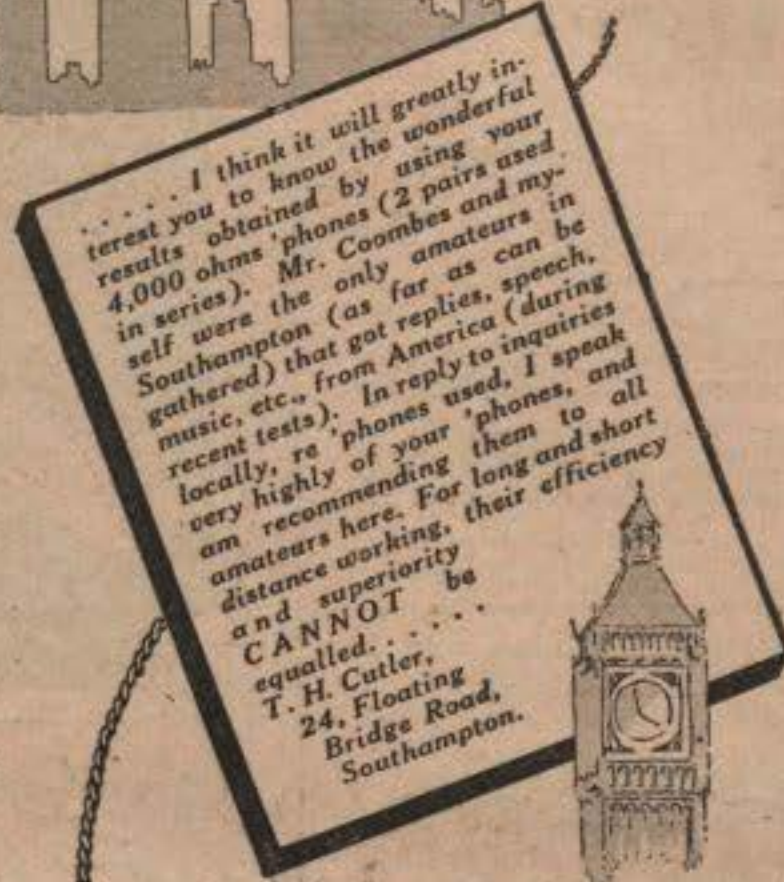 . . . . . I think it will greatly in-
terest you to know the wonderful
results obtained by using your
4,000 ohms 'phones (2 pairs used
in series). Mr. Coombes and my-
self were the only amateurs in
Southampton (as far as can be
gathered) that got replies, speech,
music, etc., from America (during
recent tests). In reply to inquiries
locally, re 'phones used, I speak
very highly of your 'phones, and
am recommending them to all
amateurs here. For long and short
distance working, their efficiency
and superiority
CANNOT be
equalled. . . . . .
T. H. Cutler,
24, Floating
Bridge Road,
Southampton.